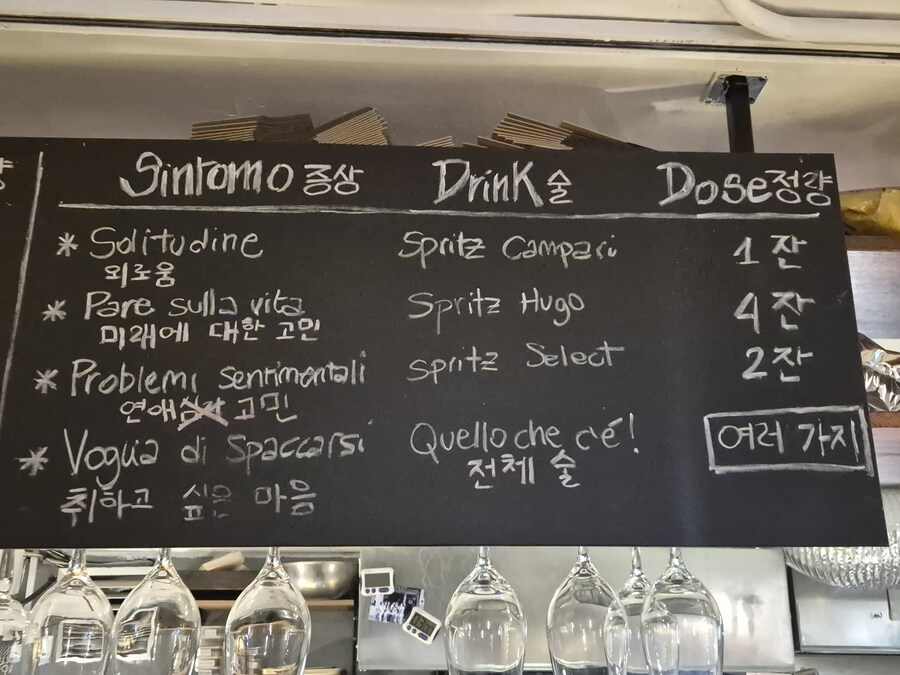 Sintomo 증상 Drink 술 Dose 정량
* Solitudine Spritz Campari 1 잔
외로움
* Pare sulla vita Spritz Hugo 4 잔
미래에 대한 고민
* Problemi sentimentali Spritz Select 2 잔
연애 고민
* Voglia di Spaccarsi Quello che c'é! 여러 가지
취하고 싶은 마음 전체 술